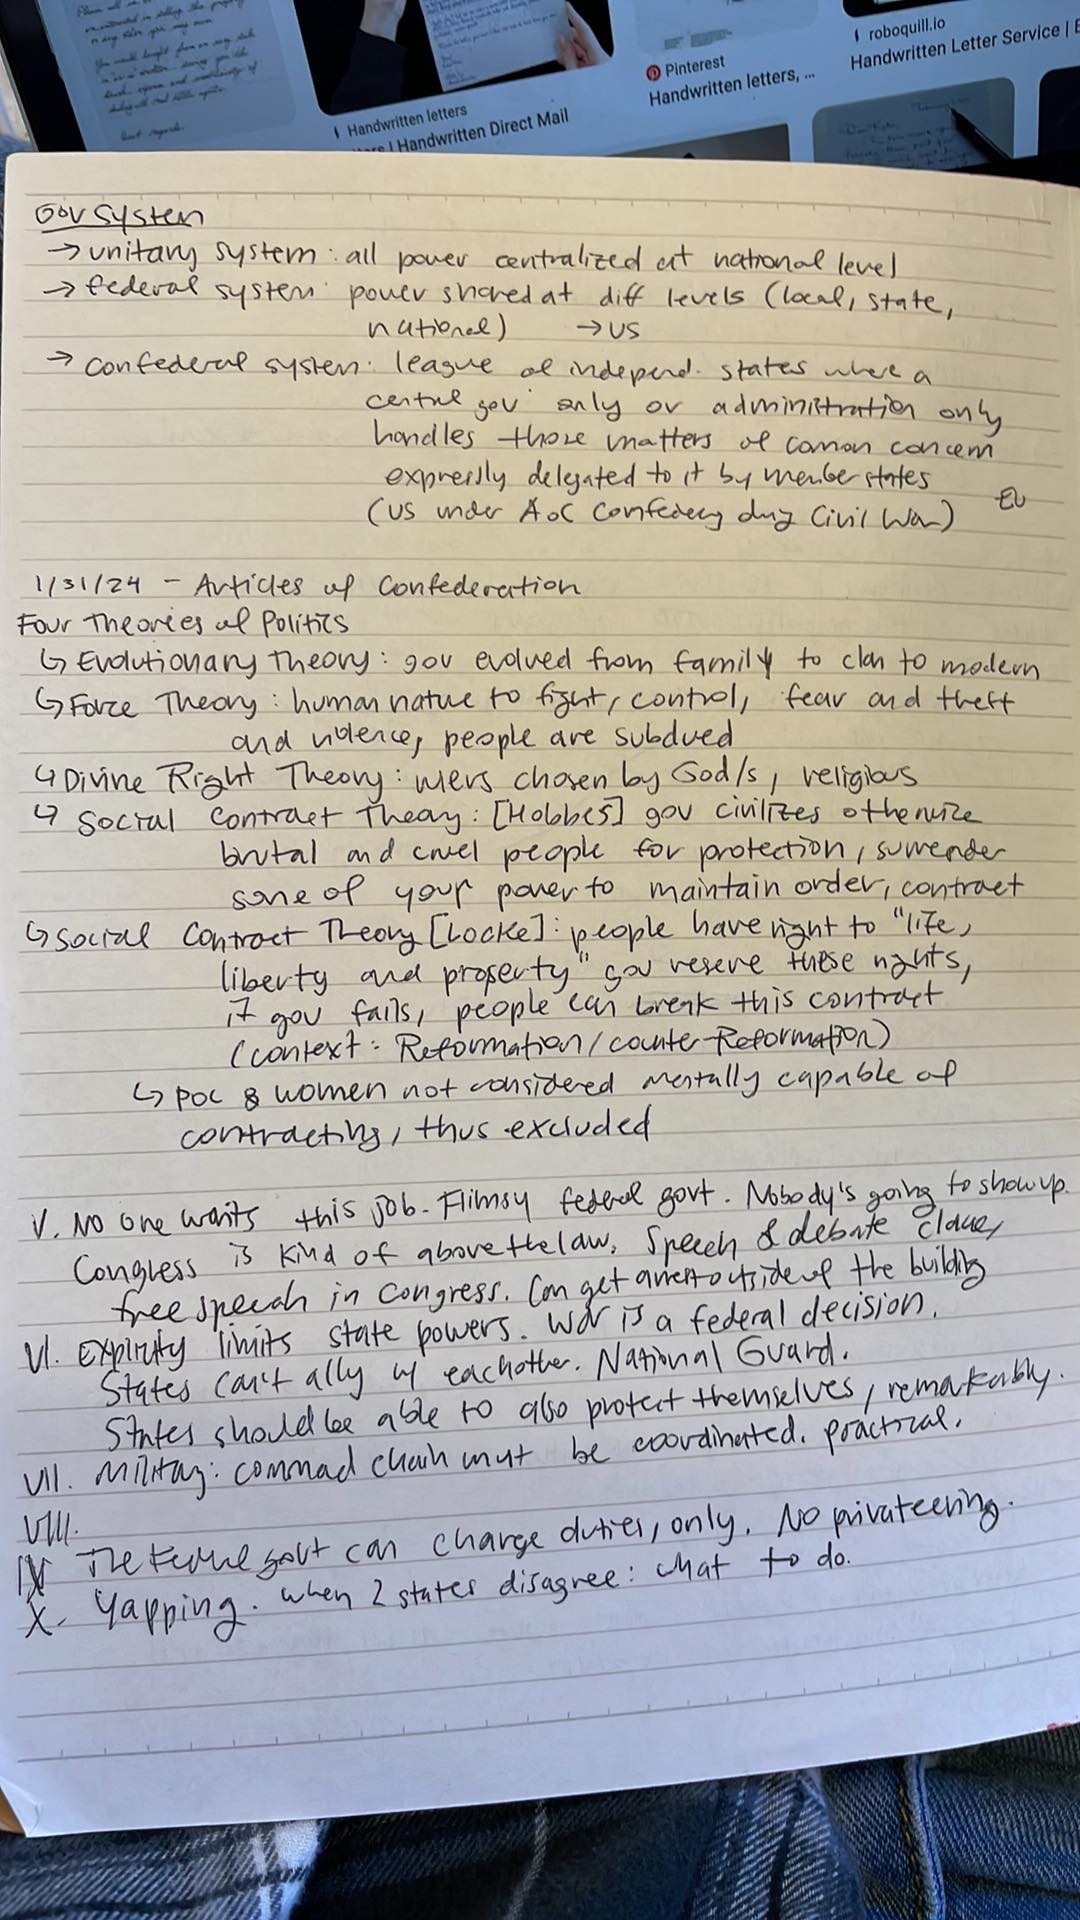 Handwritten letters
| Handwritten Direct Mail
Pinterest
Handwritten letters, ...
roboquill.io
Handwritten Letter Service | E
Gov System
→ unitary system: all power centralized at national level
→ federal system: power shared at diff levels (local, state,
national) → US
→ confederal system: league of independ. states where a
central gov only or administration only
handles those matters of comon concern
expressly delegated to it by member states
(US under AoC Confedecy durg Civil War) EU
1/31/24 - Articles of Confederation
Four Theories of Politics
↳ Evolutionary Theory: gov evolved from family to clan to modern
↳ Force Theory: human nature to fight, control, fear and theft
and violence, people are subdued
↳ Divine Right Theory: rulers chosen by God/s, religious
↳ Social Contract Theory: [Hobbes] gov civilizes otherwize
brutal and cruel people for protection, surrender
some of your power to maintain order, contract
↳ Social Contract Theory [Locke]: people have right to "life,
liberty and property" gov reserve these rights,
if gov fails, people can break this contract
(context: Reformation/counter-Reformation)
↳ POC & women not considered mentally capable of
contracting, thus excluded
V. No one wants this job. Flimsy federal govt. Nobody's going to show up.
Congress is kind of above the law. Speech & debate clause,
free speech in congress. Can get arrest outside of the building
VI. Explicity limits state powers. War is a federal decision.
States can't ally w/ eachother. National Guard.
States should be able to also protect themselves, remarkably.
VII. Military: command chain must be coordinated. practical.
VIII.
IX The federal govt can charge duties, only. No privateering.
X. Yapping. when 2 states disagree: what to do.